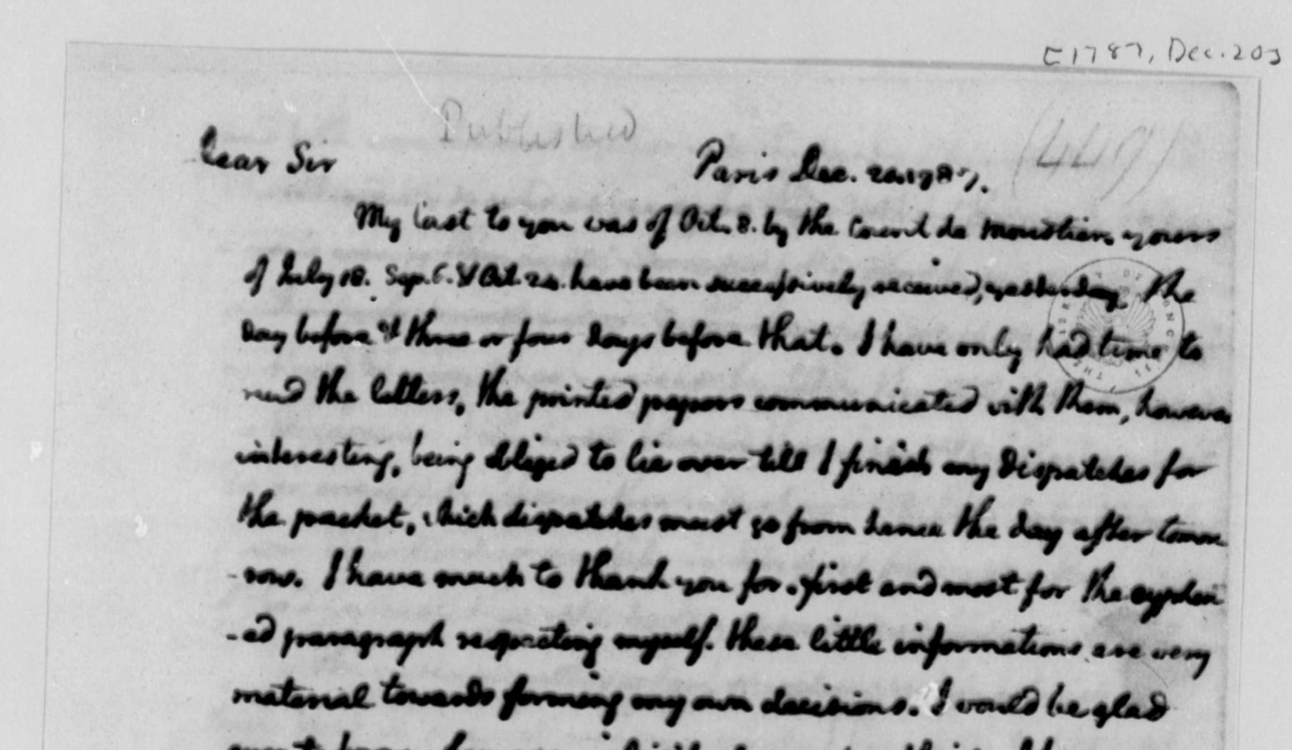 [1787, Dec. 20]
Published
Dear Sir
Paris Dec. 20. 1787.
(449)
My last to you was of Oct. 8. by the Count de Moustier. yours
of July 18. Sep. 6. & Oct. 24. have been successively received, yesterday, the
day before & three or four days before that. I have only had time to
read the letters, the printed papers communicated with them, however
interesting, being obliged to lie over till I finish my dispatches for
the packet, which dispatches must go from hence the day after tomor
-row. I have much to thank you for. first and most for the cypher
-ed paragraph respecting myself. these little informations are very
material towards forming my own decisions. I would be glad